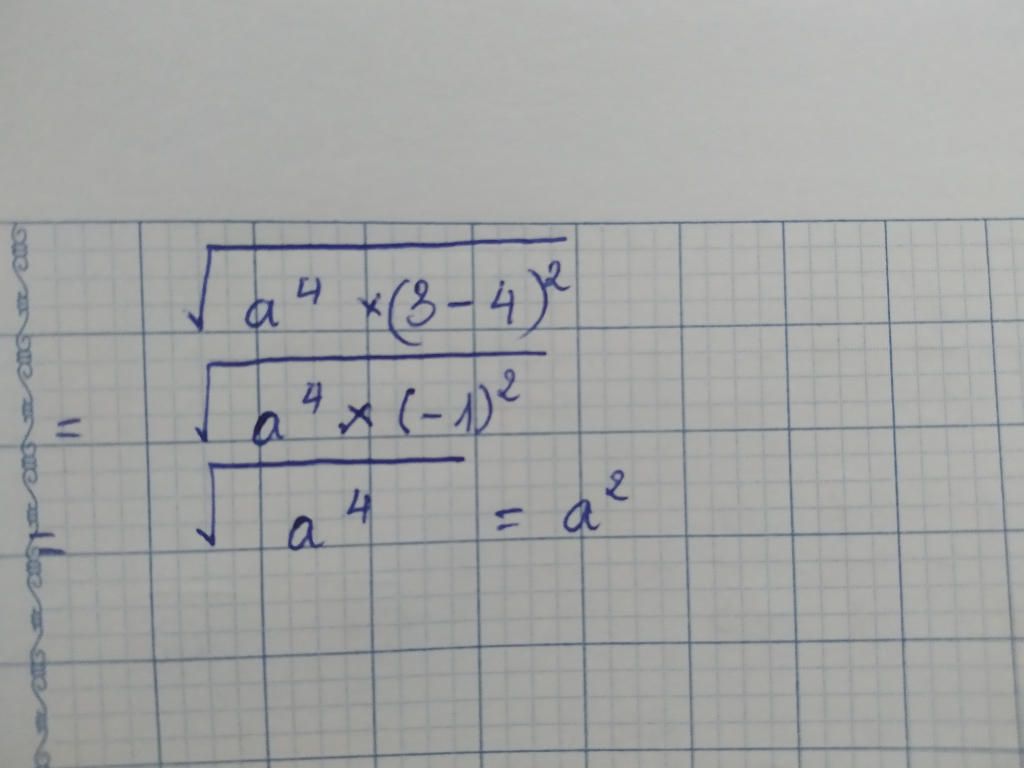 √(a⁴ × (3 - 4)²)
= √(a⁴ × (-1)²)
= √(a⁴) = a²